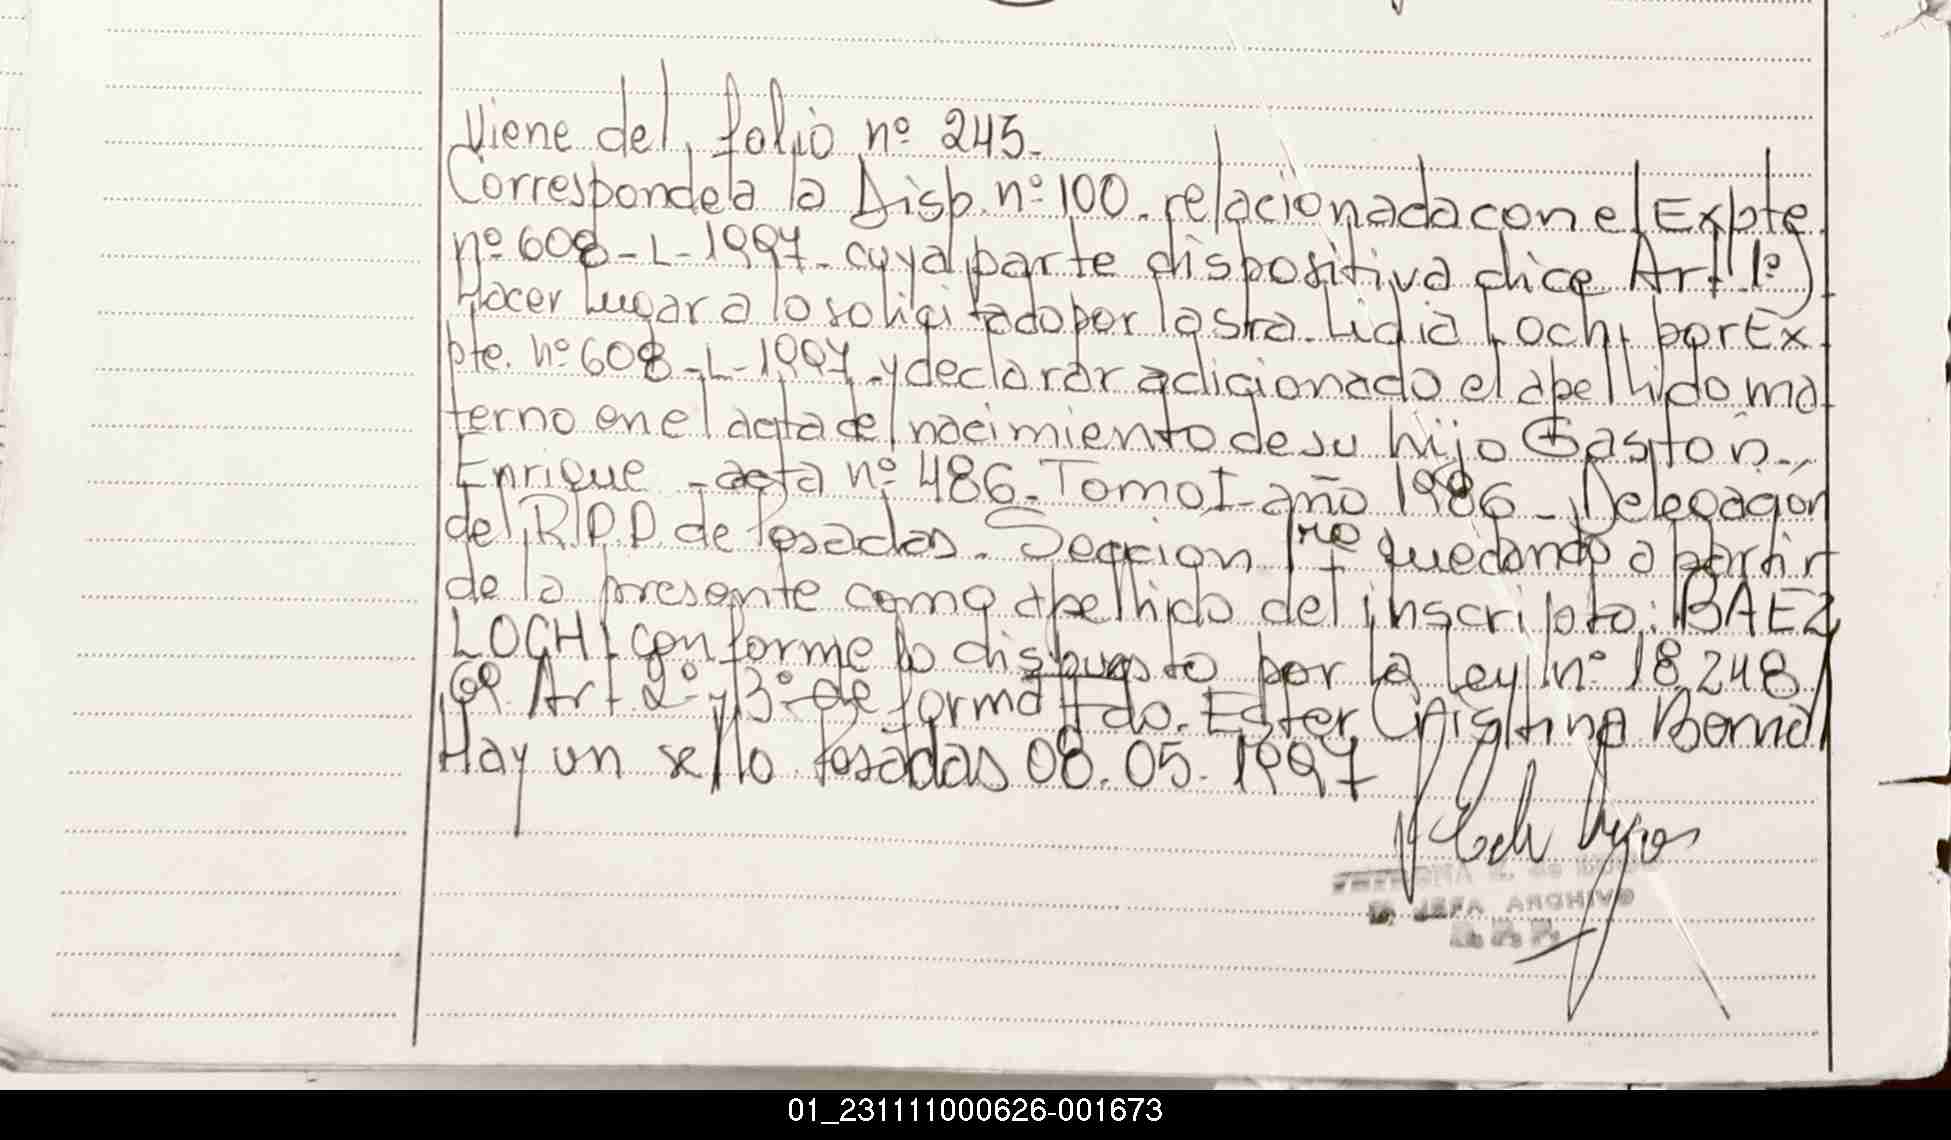 Viene del folio nº 245.
Correspondela la Disp. nº 100. relacionada con el Expte.
nº 608-L-1997- cuya parte dispositiva dice Art 1º)
Hacer Lugar a lo solicitado por la Sra. Lidia Lochi por Ex-
pte. nº 608-L-1997 y declarar adicionado el apellido ma-
terno en el acta de nacimiento de su hijo Gastón
Enrique - acta nº 486. Tomo I - año 1986 - Delegación
del R.P.P de Posadas. Sección 1ra quedando a partir
de la presente como apellido del inscripto: BAEZ
LOCHI conforme lo dispuesto por la Ley nº 18.248
Art. 2º y 3º de forma Fdo. Ester Cristina Bernal
Hay un sello Posadas 08.05.1997
JEFA ARCHIVO
R. P. P.
01_231111000626-001673